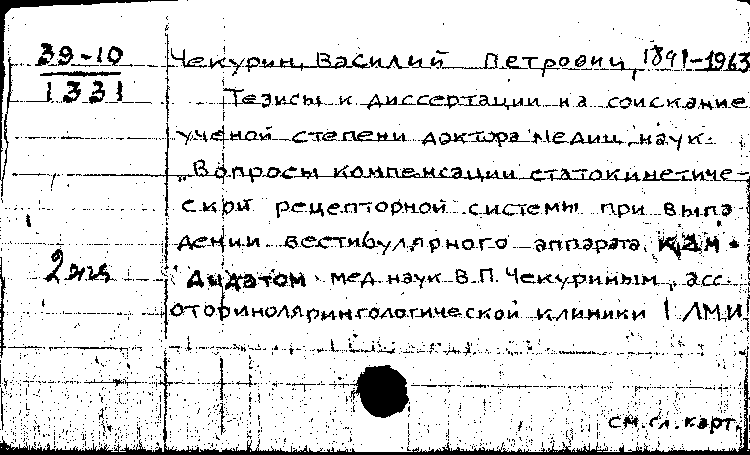 39-10
1331
Чекурин, Василий Петрович, 1891-1963
Тезисы к диссертации на соискание
ученой степени доктора медиц. наук.
„Вопросы компенсации статокинетиче-
ской рецепторной системы при выпа-
дении вестибулярного аппарата. кан-
дидатом мед. наук В.П. Чекуриным, асс.
оториноларингологической клиники I ЛМИ
2 экз
см. гл. карт.